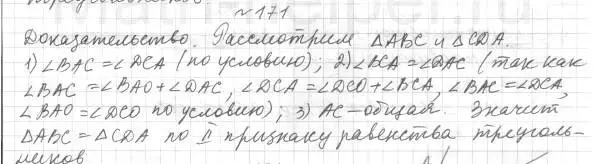 №171
Доказательство. Рассмотрим △ABC и △CDA.
1) ∠BAC = ∠DCA (по условию); 2) ∠BCA = ∠DAC (так как
∠BAC = ∠BAO + ∠DAC, ∠DCA = ∠DCO + ∠BCA, ∠BAC = ∠DCA,
∠BAO = ∠DCO по условию); 3) AC – общая. Значит,
△ABC = △CDA по II признаку равенства треуголь-
ников